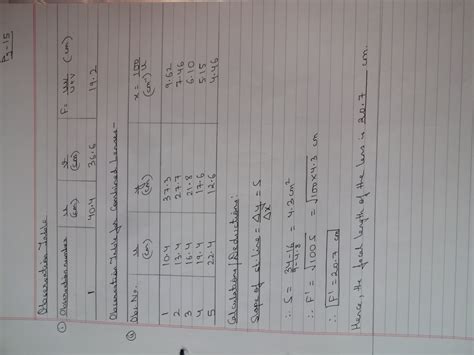 Pg-15
Observation Table
① Observation number u (cm) v (cm) F = uv/u+v (cm)
1 40.4 36.6 19.2
② Observation Table for Combined Lenses-
Obs. No. u (cm) v (cm) x = 100/u (cm⁻¹)
1 10.4 37.3 9.62
2 13.4 27.7 7.46
3 16.4 21.8 6.10
4 19.4 17.6 5.15
5 22.4 12.6 4.46
Calculations/Deductions:
Slope of st. line = Δy/Δx = S
∴ S = 34-16/9-4.8 = 4.3 cm²
∴ F' = √100S = √100×4.3 cm
∴ F' = 20.7 cm
Hence, the focal length of the lens is 20.7 cm.